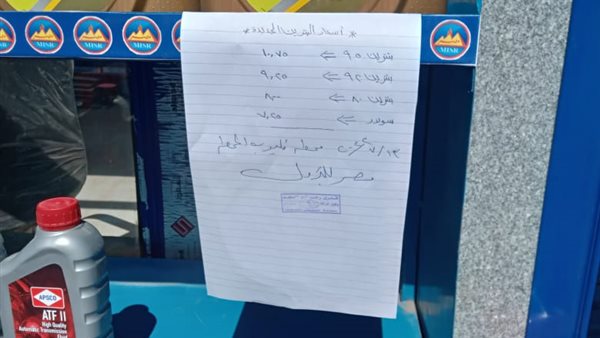 * أسعار البنزين الجديدة *
بنزين ٩٥ ⇐ ١٠,٧٥
بنزين ٩٢ ⇐ ٩,٢٥
بنزين ٨٠ ⇐ ٨,٠٠
سولار ⇐ ٧,٢٥
٧/١٣
مصر للبترول
MISR
MISR
MISR
MISR
APSCO
ATF II
High Quality
Automatic Transmission
Fluid